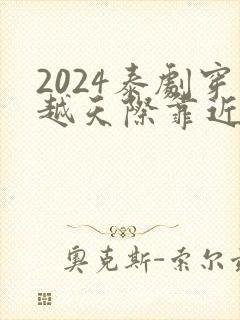 2024泰劇穿
越天際靠近
奧克斯-索尔